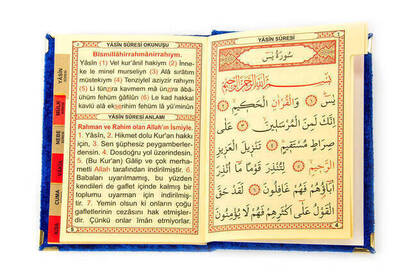 YÂSİN SÛRESİ OKUNUŞU
Bismillâhirrahmânirrahıym.
Yâsîn (1) Vel kur'ânil hakiym (2) İnne-
ke le minel murseliyn (3) Alâ sırâtım
müstekıym (4) Tenziylel aziyzir rahiym
(5) Li tünzira kavmem mâ ünzira âbâ-
ühüm fehüm ğâfilûn (6) Le kad hakkal
kavlü alâ ekserihim fehüm lâ yü'minûn
YÂSİN SÛRESİ ANLAMI
Rahman ve Rahim olan Allah'ın İsmiyle.
1. Yâsîn, 2. Hikmet dolu Kur'an hakkı
için, 3. Sen şüphesiz peygamberler-
densin. 4. Dosdoğru yol üzerindesin.
5. (Bu Kur'an) Gâlip ve çok merha-
metli Allah tarafından indirilmiştir. 6.
Babaları uyarılmamış, bu yüzden
kendileri de gaflet içinde kalmış bir
toplumu uyarman için indirilmiş-
tir. 7. Yemin olsun ki onların çoğu
gafletlerinin cezasını hak etmişler-
dir. Çünkü onlar îman etmiyorlar.
YÂSİN
MÜLK
NEBE
CUMA
YÂSİN SÛRESİ
سُورَةُ يٰسٓ
بِسْمِ اللّٰهِ الرَّحْمٰنِ الرَّحِيمِ
يٰسٓ ﴿١﴾ وَالْقُرْاٰنِ الْحَكِيمِ ﴿٢﴾
اِنَّكَ لَمِنَ الْمُرْسَلِينَ ﴿٣﴾ عَلٰى
صِرَاطٍ مُسْتَقِيمٍ ﴿٤﴾ تَنْزِيلَ الْعَزِيزِ
الرَّحِيمِ ﴿٥﴾ لِتُنْذِرَ قَوْمًا مَٓا اُنْذِرَ
اٰبَٓاؤُهُمْ فَهُمْ غَافِلُونَ ﴿٦﴾ لَقَدْ حَقَّ
الْقَوْلُ عَلٰٓى اَكْثَرِهِمْ فَهُمْ لَا يُؤْمِنُونَ